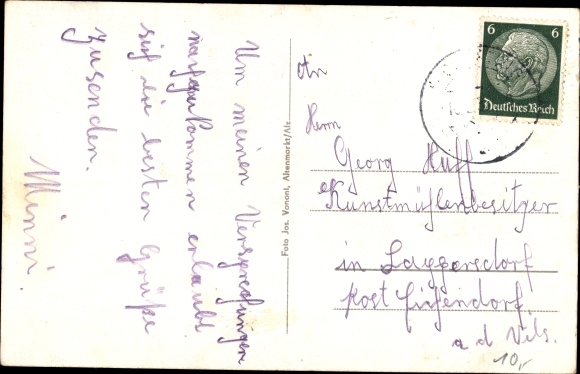 Um meinen Versprechungen
nachzukommen erlaubt
sich die besten Grüße
zusenden.
Minni.
Foto Jos. Vonont, Altenmarkt/Alz
6 6
Deutsches Reich
An
Herrn
Georg Huff
Kunstmühlenbesitzer
in
post
a d Vils.
10,-